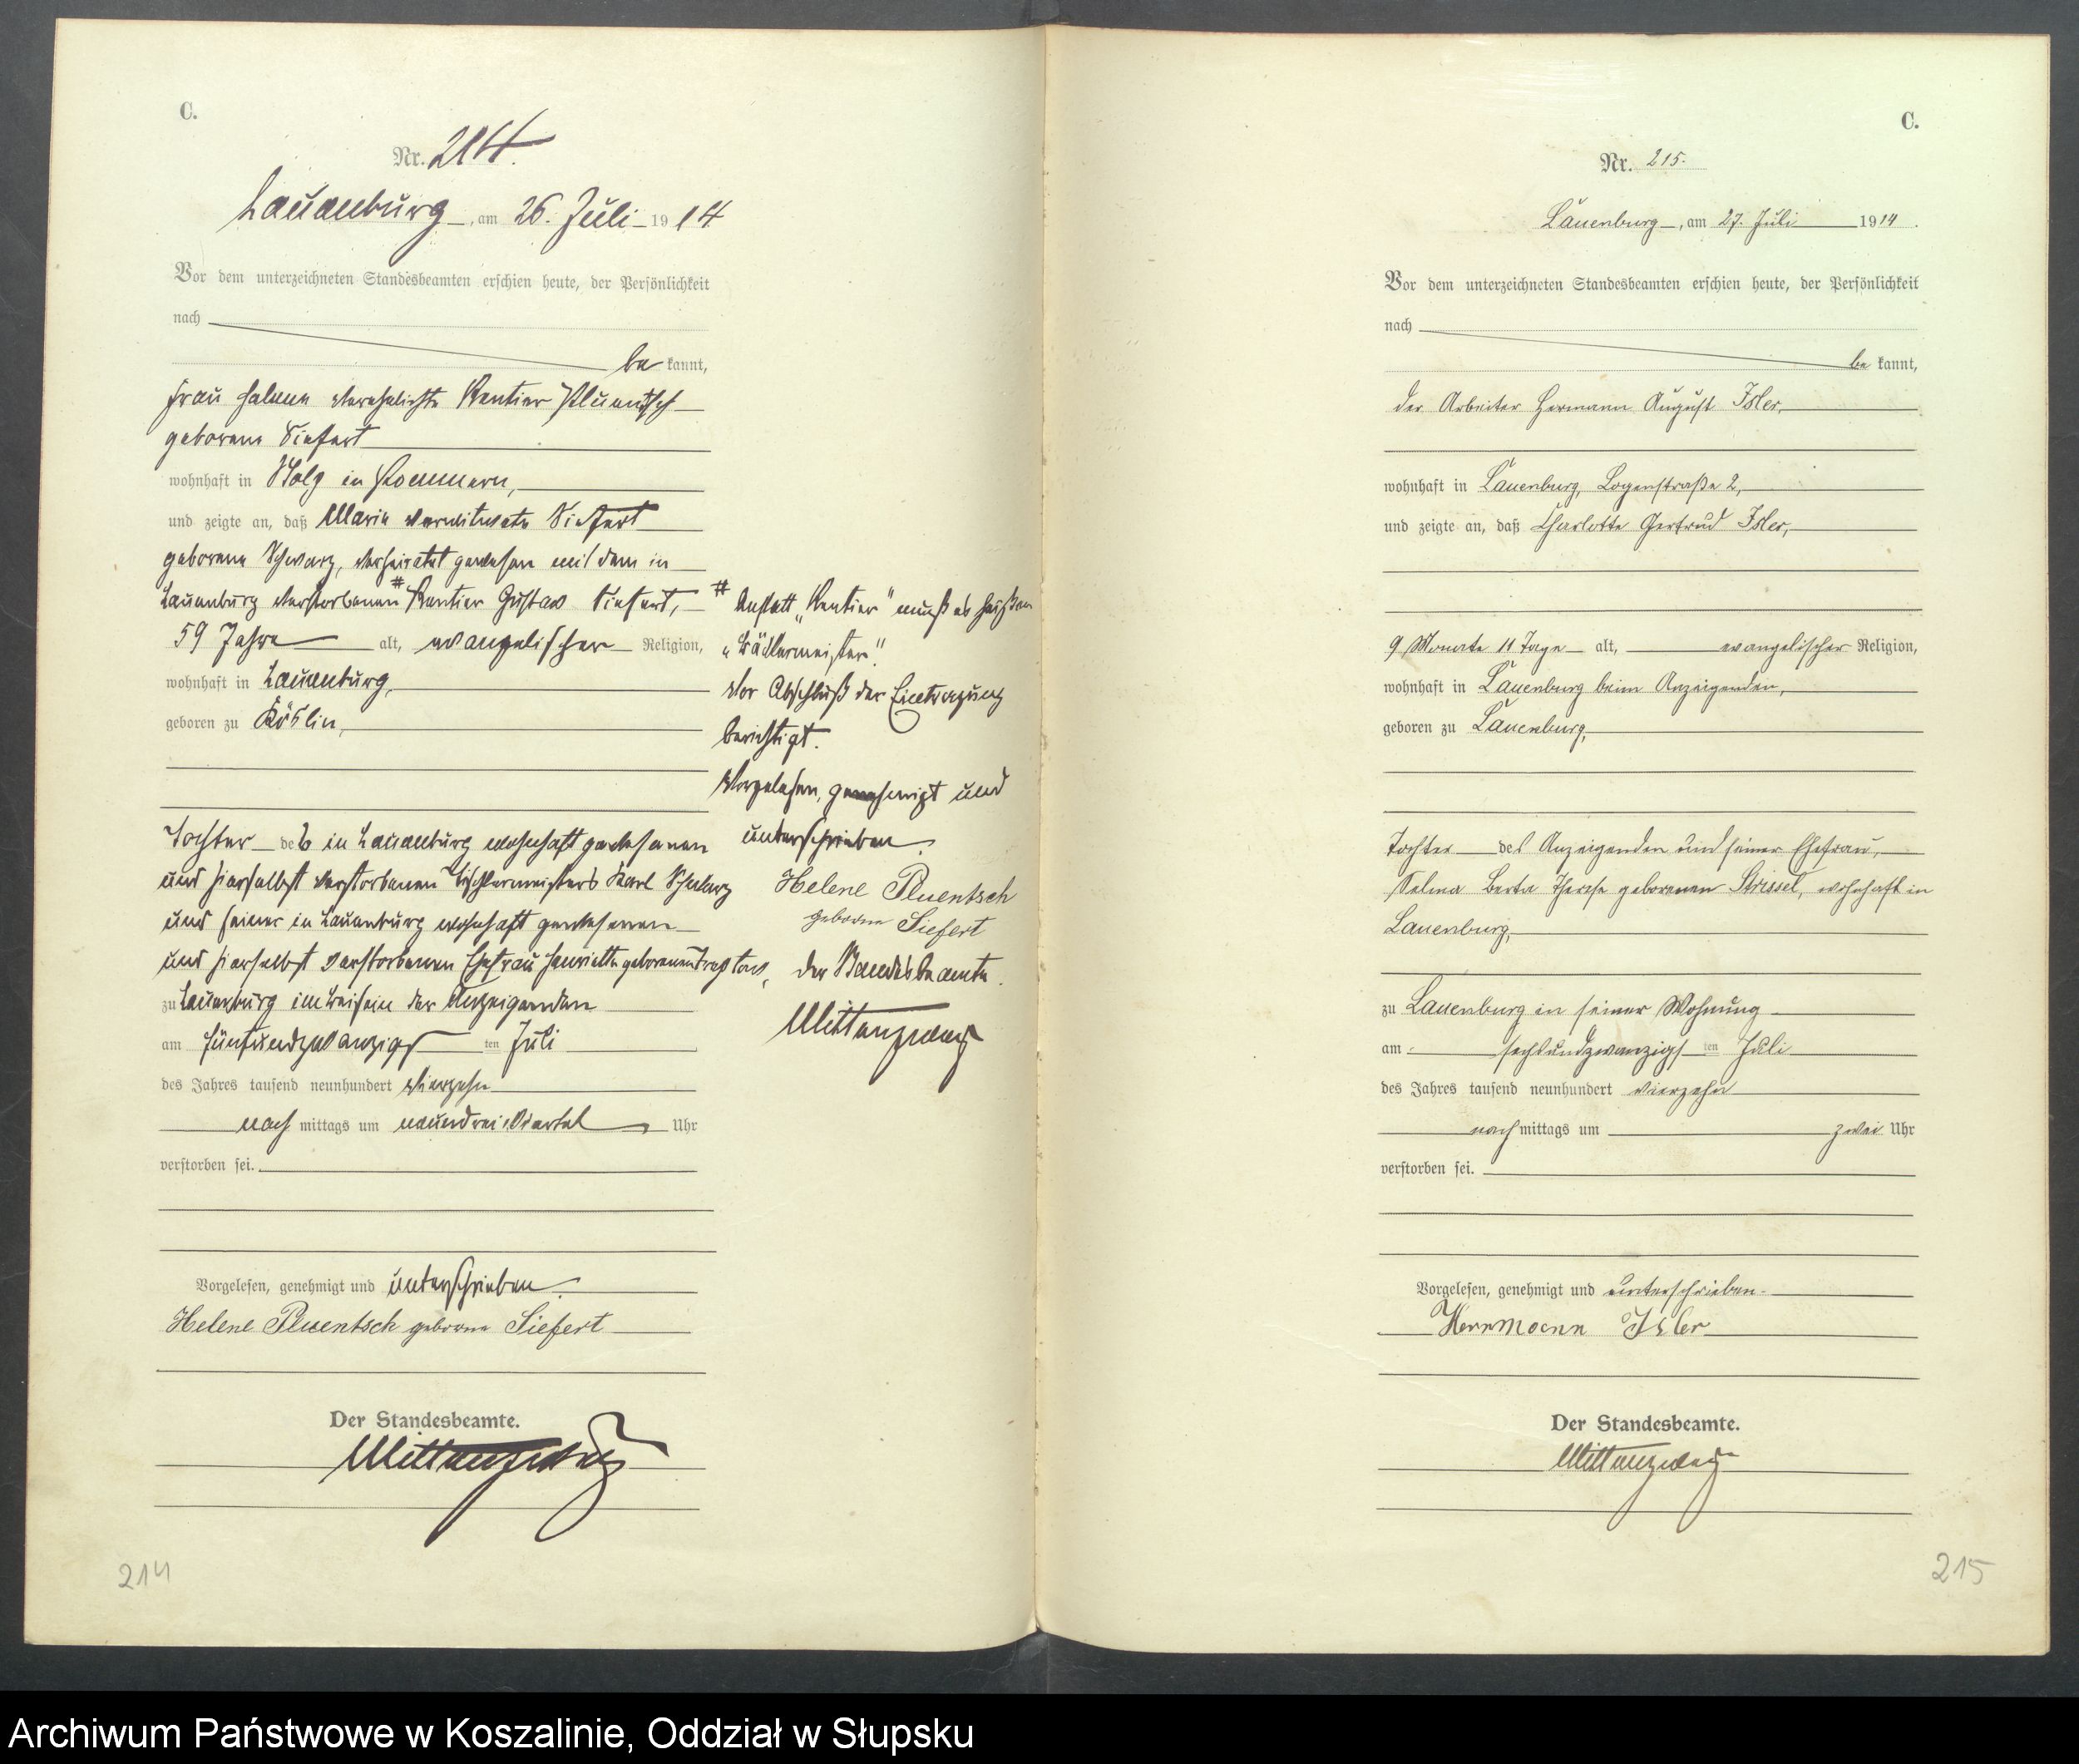 C.
Nr. 214.
Lauenburg, am 26. Juli 1914
Vor dem unterzeichneten Standesbeamten erschien heute, der Persönlichkeit
nach
be kannt,
Frau Helene verehelichte Rentier Pluentsch
geborene Siefert
wohnhaft in Stolp in Pommern,
und zeigte an, daß Marie verwitwete Siefert
geborene Schwarz, verheiratet gewesen mit dem in
Lauenburg verstorbenen # Rentier Gustav Siefert,
59 Jahre alt, evangelischer Religion,
wohnhaft in Lauenburg,
geboren zu Köslin,
Tochter des in Lauenburg wohnhaft gewesenen
und hierselbst verstorbenen Tischlermeisters Karl Schwarz
und seiner in Lauenburg wohnhaft gewesenen
und hierselbst verstorbenen Ehefrau Henriette geborenen
zu Lauenburg im Beisein der Anzeigenden
am fünfundzwanzigsten Juli
des Jahres tausend neunhundert vierzehn
nach mittags um neundreiviertel Uhr
verstorben sei.
Vorgelesen, genehmigt und unterschrieben.
Helene Pluentsch geborene Siefert
Der Standesbeamte.
Mittenzwey
214
# Anstatt „Rentier" muß es heißen
„Bäckermeister".
Vor Abschluß der Eintragung
berichtigt.
Vorgelesen, genehmigt und
unterschrieben.
Helene Pluentsch
geborne Siefert
Der Standesbeamte.
Mittenzwey
C.
Nr. 215.
Lauenburg, am 27. Juli 1914.
Vor dem unterzeichneten Standesbeamten erschien heute, der Persönlichkeit
nach
be kannt,
der Arbeiter Hermann August Isler,
wohnhaft in Lauenburg, Logenstraße 2,
und zeigte an, daß Charlotte Gertrud Isler,
9 Monate 11 Tage alt, evangelischer Religion,
wohnhaft in Lauenburg beim Anzeigenden,
geboren zu Lauenburg,
Tochter des Anzeigenden und seiner Ehefrau,
Selma Berta Therese geborenen Strissel, wohnhaft in
Lauenburg,
zu Lauenburg in seiner Wohnung
am sechsundzwanzigsten Juli
des Jahres tausend neunhundert vierzehn
nach mittags um zwei Uhr
verstorben sei.
Vorgelesen, genehmigt und unterschrieben.
Herrmann Isler
Der Standesbeamte.
Mittenzwey
215
Archiwum Państwowe w Koszalinie, Oddział w Słupsku